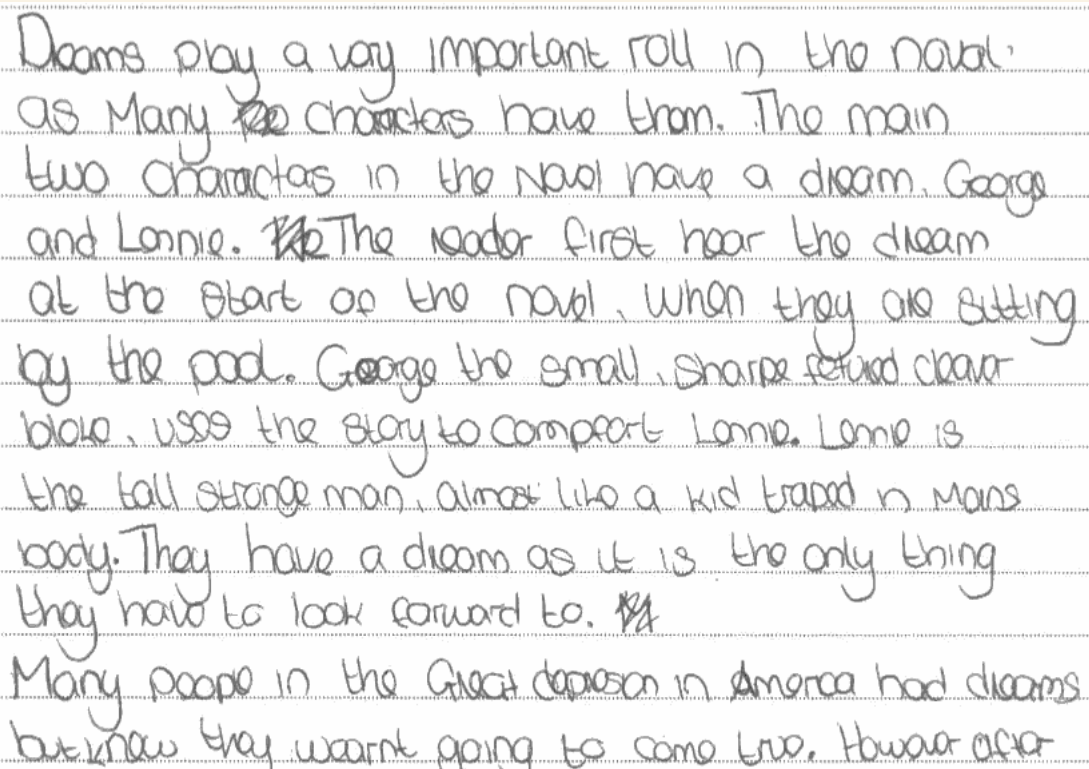 Dreams play a very important roll in the novel.
as Many characters have them. The main
two characters in the Novel have a dream. George
and Lennie. The reader first hear the dream
at the start of the novel, when they are sitting
by the pool. George the small, sharpe fetured clever
bloke, uses the story to compfort Lennie. Lennie is
the tall strange man, almost like a kid traped in Mans
body. They have a dream as it is the only thing
they have to look forward to.
Many people in the Great depreson in America had dreams
but knew they wearnt going to come true. However after